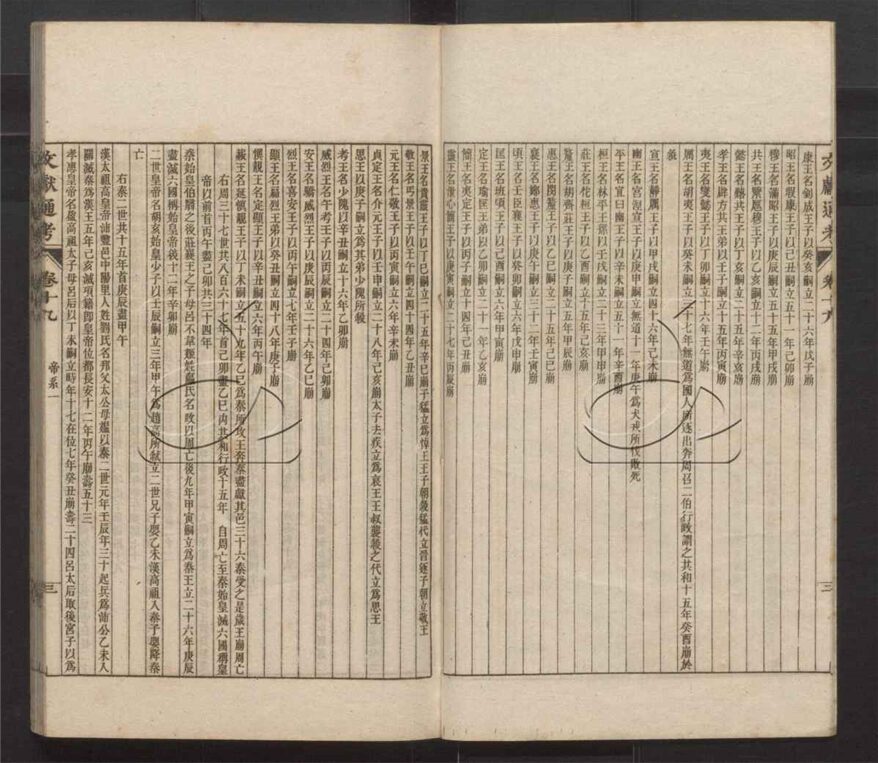 文獻通考 卷十九 三
康王名釗成王子以癸亥嗣立二十六年戊子崩
昭王名瑕康王子以己丑嗣立五十一年己卯崩
穆王名滿昭王子以庚辰嗣立五十五年甲戌崩
共王名繄扈穆王子以乙亥嗣立十二年丙戌崩
懿王名囏共王子以丁亥嗣立二十五年辛亥崩
孝王名辟方共王弟以壬子嗣立十五年丙寅崩
夷王名燮懿王子以丁卯嗣立十六年壬午崩
厲王名胡夷王子以癸未嗣立三十七年無道為國人所逐出奔周召二伯行政謂之共和十五年癸酉崩於
彘
宣王名靜厲王子以甲戌嗣立四十六年己未崩
幽王名宮涅宣王子以庚申嗣立無道十一年庚午為犬戎所伐敗死
平王名宜臼幽王子以辛未嗣立五十一年辛酉崩
桓王名林平王孫以壬戌嗣立二十三年甲申崩
莊王名佗桓王子以乙酉嗣立十五年己亥崩
釐王名胡齊莊王子以庚子嗣立五年甲辰崩
惠王名閬釐王子以乙巳嗣立二十五年己巳崩
襄王名鄭惠王子以庚午嗣立三十二年壬寅崩
頃王名壬臣襄王子以癸卯嗣立六年戊申崩
匡王名班頃王子以己酉嗣立六年甲寅崩
定王名瑜匡王弟以乙卯嗣立二十一年乙亥崩
簡王名夷定王子以丙子嗣立十四年己丑崩
靈王名泄心簡王子以庚寅嗣立二十七年丙辰崩
景王名貴靈王子以丁巳嗣立二十五年辛巳崩子猛立為悼王王子朝殺猛代立晉逐子朝立敬王
敬王名丐景王子以壬午嗣立四十四年乙丑崩
元王名仁敬王子以丙寅嗣立六年辛未崩
貞定王名介元王子以壬申嗣立二十八年己亥崩太子去疾立為哀王王叔襲殺之代立為思王
思王以庚子嗣立為其弟少隗所殺
考王名少隗以辛丑嗣立十六年乙卯崩
威烈王名午考王子以丙辰嗣立二十四年己卯崩
安王名驕威烈王子以庚辰嗣立二十六年乙巳崩
烈王名喜安王子以丙午嗣立七年壬子崩
顯王名扁烈王弟以癸丑嗣立四十八年庚子崩
慎靚王名定顯王子以辛丑嗣立六年丙午崩
赧王名延慎靚王子以丁未嗣立五十九年乙巳為秦所攻王奔秦盡獻其邑三十六秦受之是歲王崩周亡
右周三十七世共八百六十七年首己卯盡乙巳內共和行政十五年 自周亡至秦始皇滅六國稱皇
帝以前首丙午盡己卯共三十四年
秦始皇伯翳之後莊襄王之子母呂不韋姬姓嬴氏名政以周亡後九年甲寅嗣立為秦王立二十六年庚辰
盡滅六國稱始皇帝後十二年辛卯崩
二世皇帝名胡亥始皇少子以壬辰嗣立三年甲午為趙高所弒立二世兄子嬰乙未漢高祖入秦子嬰降秦
亡
右秦二世共十五年首庚辰盡甲午
漢太祖高皇帝沛豐邑中陽里人姓劉氏名邦父太公母媼以秦二世元年壬辰年三十起兵為沛公乙未入
關滅秦為漢王五年己亥滅項籍即皇帝位都長安十二年丙午崩壽五十三
孝惠皇帝名盈高祖太子母呂后以丁未嗣立時年十七在位七年癸丑崩壽二十四呂太后取後宮子以為
文獻通考 卷十九 帝系一 三